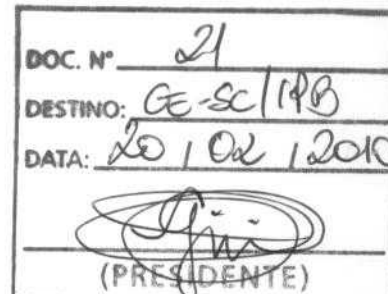 DOC. Nº 21
DESTINO: CE-SC/IPB
DATA: 20 / 02 / 2010
(PRESIDENTE)